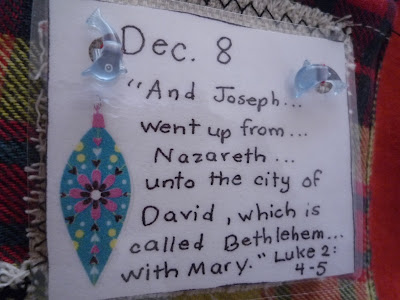 Dec. 8
"And Joseph...
went up from...
Nazareth...
unto the city of
David, which is
called Bethlehem...
with Mary." Luke 2:
4-5